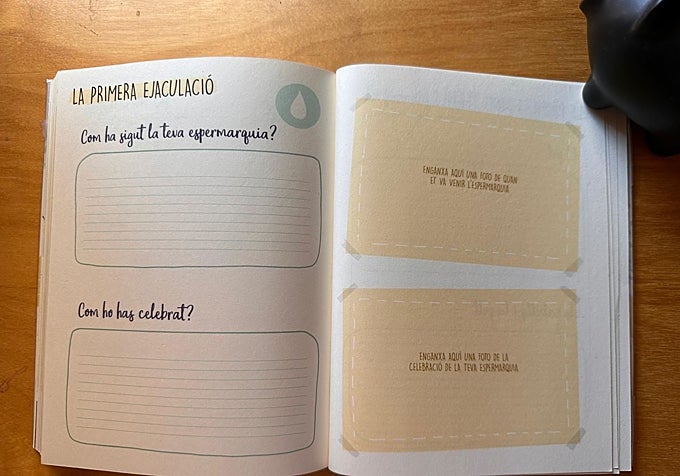 LA PRIMERA EJACULACIÓ
Com ha sigut la teva espermarquia?
Com ho has celebrat?
ENGANXA AQUÍ UNA FOTO DE QUAN
ET VA VENIR L'ESPERMARQUIA
ENGANXA AQUÍ UNA FOTO DE LA
CELEBRACIÓ DE LA TEVA ESPERMARQUIA